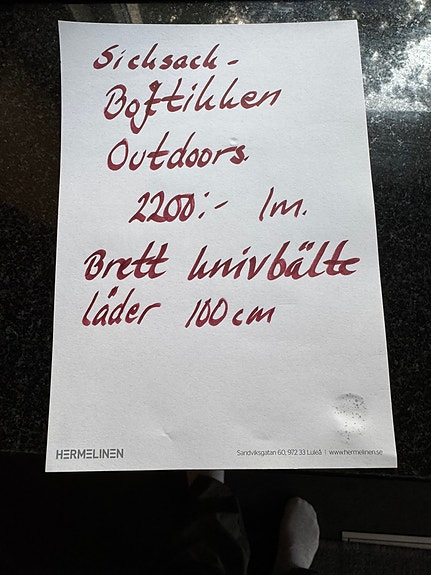 Sicksack-
Boftikken
Outdoors.
2200:- 1m.
Brett knivbälte
läder 100 cm
HERMELINEN
Sandviksgatan 60, 972 33 Luleå | www.hermelinen.se